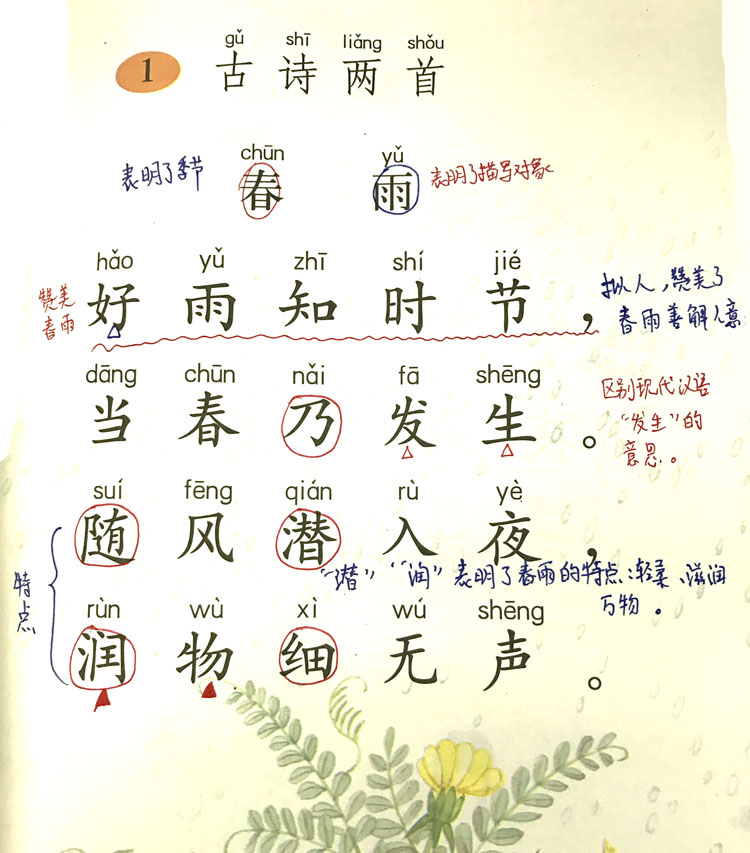 gǔ shī liǎng shǒu
1 古诗两首
chūn yǔ
表明了季节 春 雨 表明了描写对象
hǎo yǔ zhī shí jié
赞美
春雨
好雨知时节，
拟人，赞美了
春雨善解人意
dāng chūn nǎi fā shēng
当春乃发生。
区别现代汉语
“发生”的
意思。
suí fēng qián rù yè
随风潜入夜，
特点
“潜”“润”表明了春雨的特点：轻柔、滋润
万物。
rùn wù xì wú shēng
润物细无声。